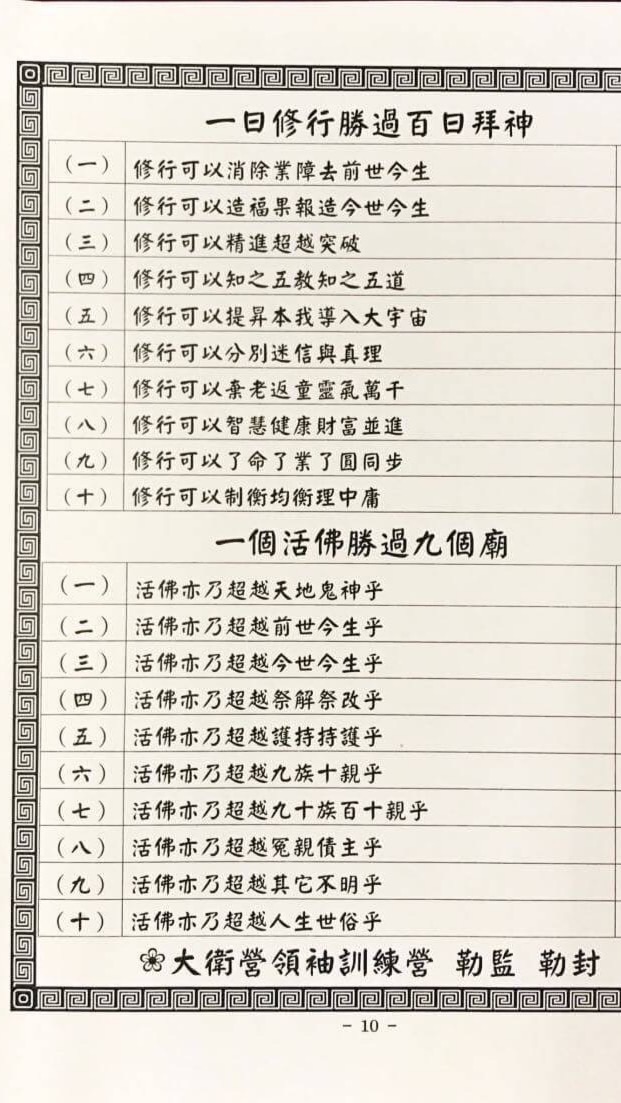 一日修行勝過百日拜神
(一) 修行可以消除業障去前世今生
(二) 修行可以造福果報造今世今生
(三) 修行可以精進超越突破
(四) 修行可以知之五教知之五道
(五) 修行可以提昇本我導入大宇宙
(六) 修行可以分別迷信與真理
(七) 修行可以棄老返童靈氣萬千
(八) 修行可以智慧健康財富並進
(九) 修行可以了命了業了圓同步
(十) 修行可以制衡均衡理中庸
一個活佛勝過九個廟
(一) 活佛亦乃超越天地鬼神乎
(二) 活佛亦乃超越前世今生乎
(三) 活佛亦乃超越今世今生乎
(四) 活佛亦乃超越祭解祭改乎
(五) 活佛亦乃超越護持持護乎
(六) 活佛亦乃超越九族十親乎
(七) 活佛亦乃超越九十族百十親乎
(八) 活佛亦乃超越冤親債主乎
(九) 活佛亦乃超越其它不明乎
(十) 活佛亦乃超越人生世俗乎
❀大衛營領袖訓練營 勒監 勒封
- 10 -